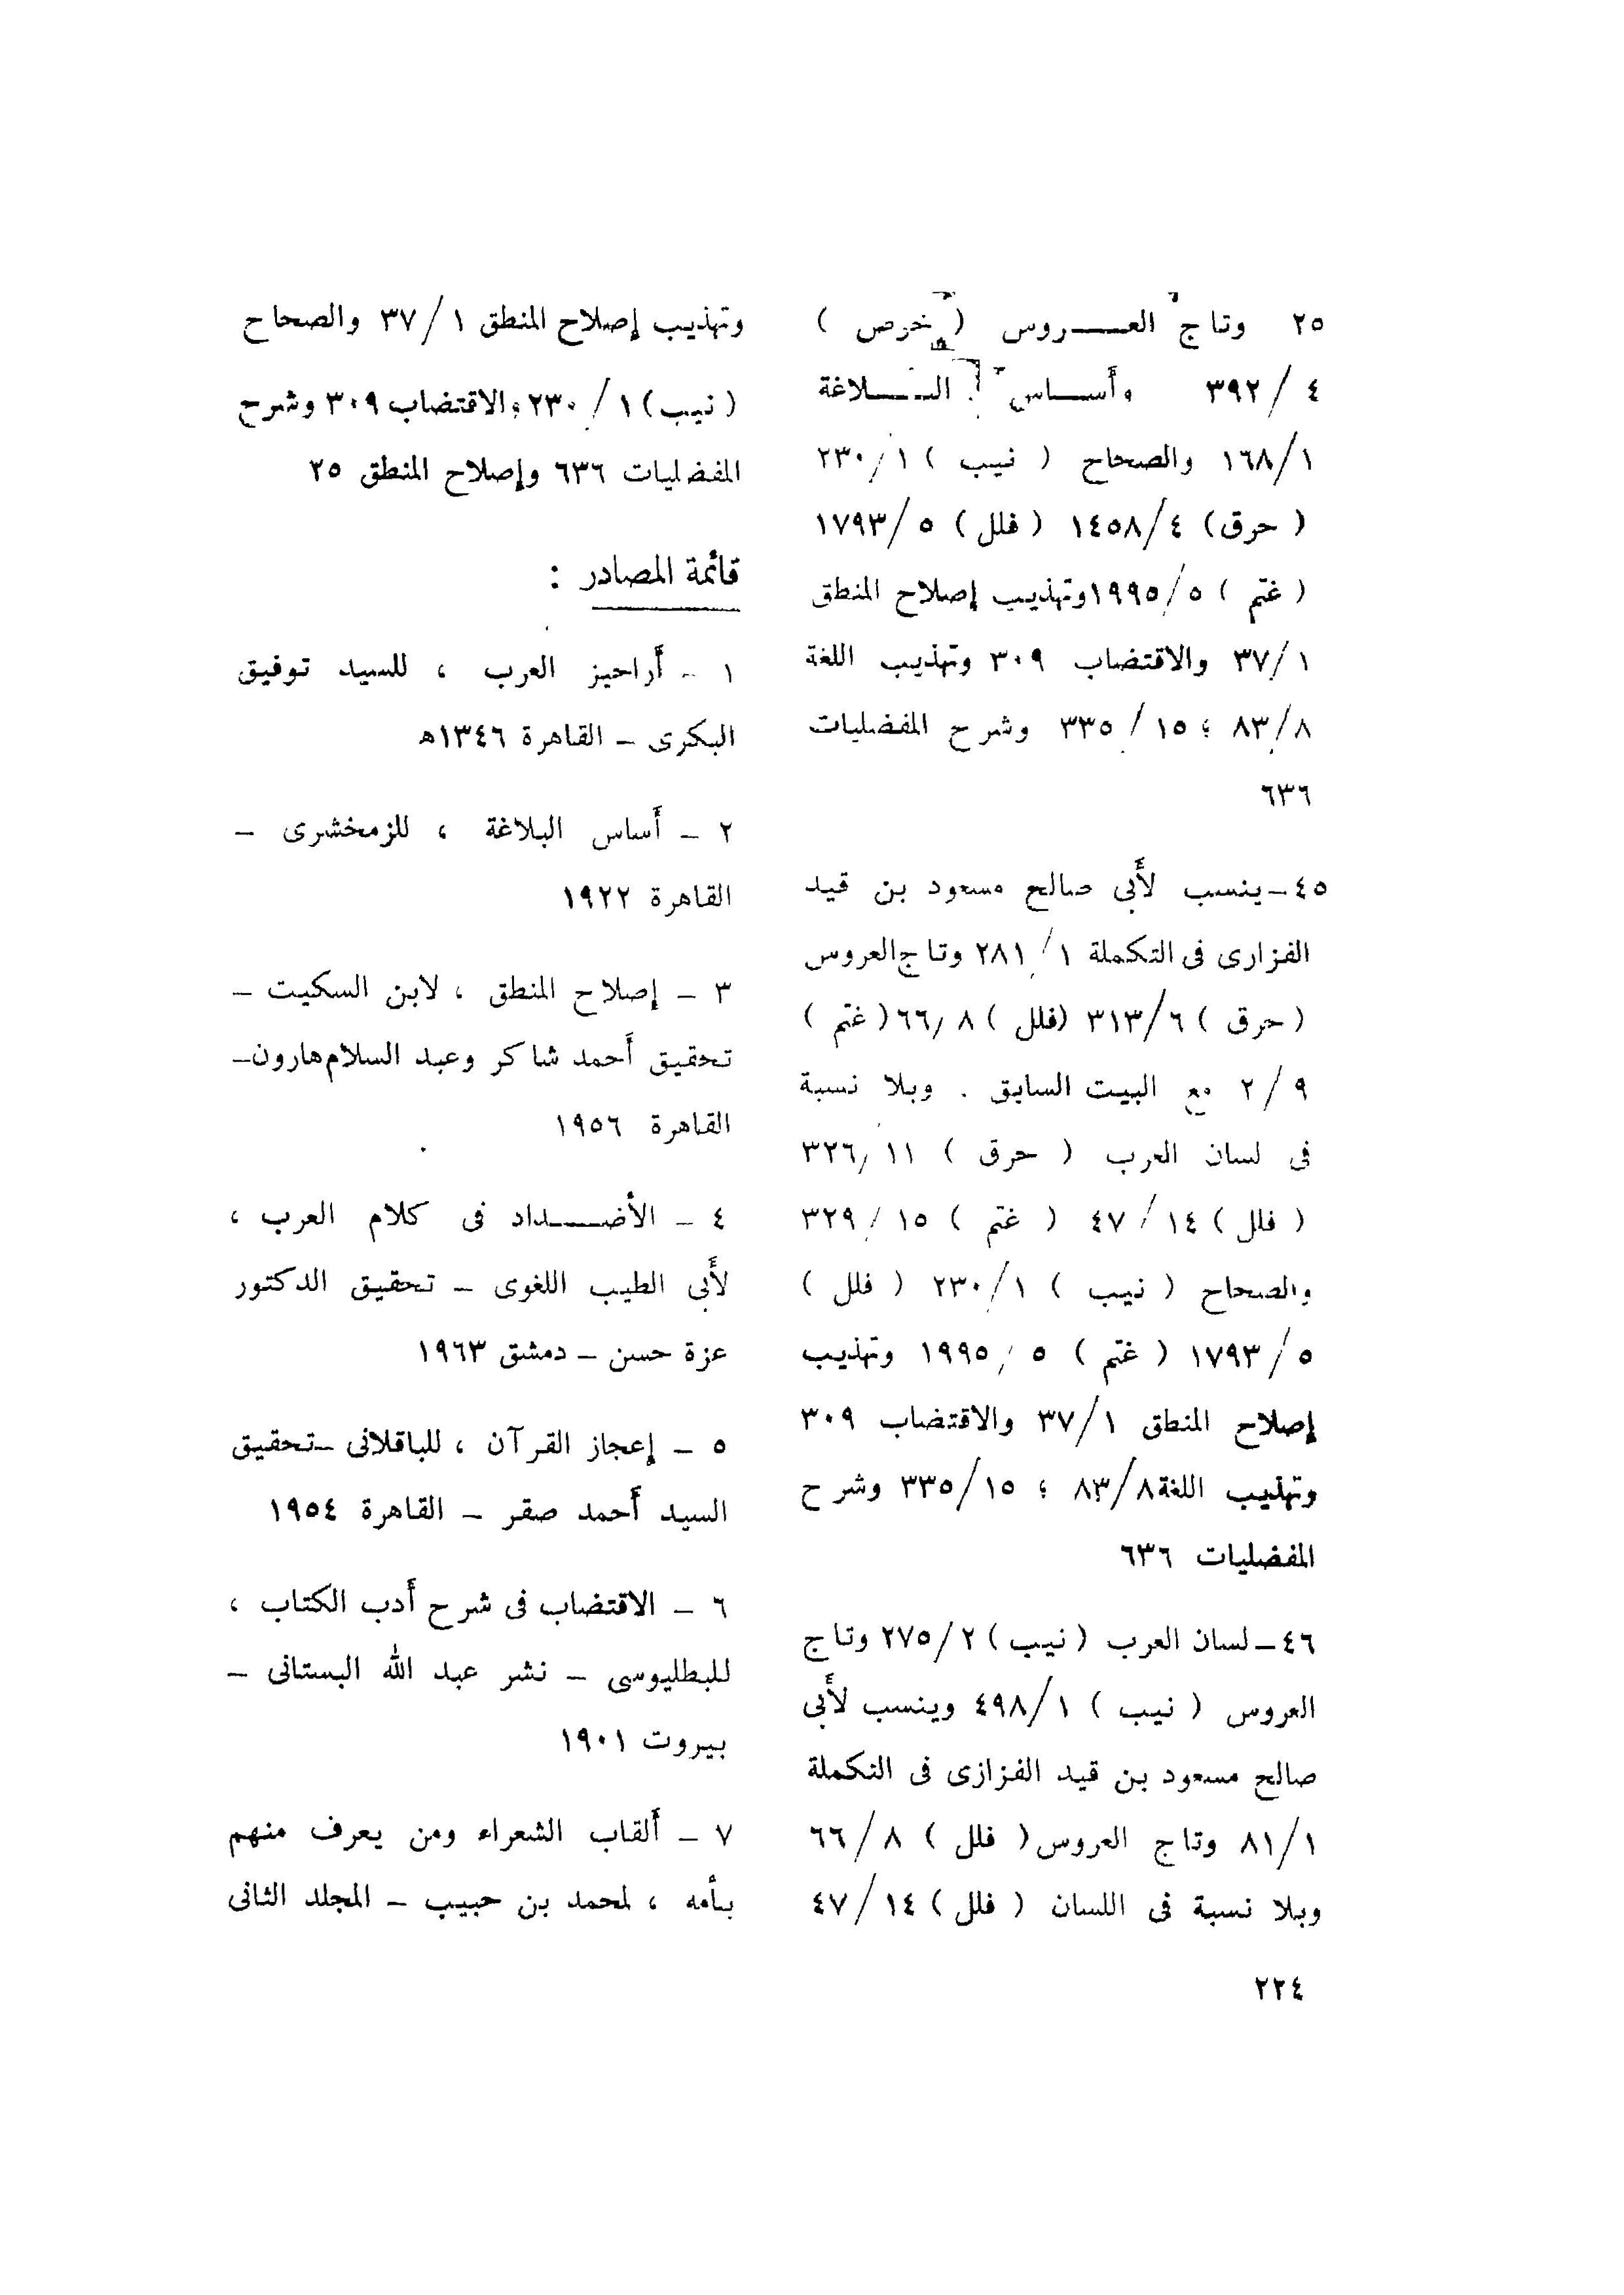 ٢٥ وتاج العـــروس ( خرص )
٤ / ٣٩٢ وأســاس البـــلاغة
١/١٦٨ والصحاح ( نيب ) ١/٢٣٠
( حرق) ٤/١٤٥٨ ( فلل) ٥/١٧٩٣
( غتم ) ٥/١٩٩٥وتهذيب إصلاح المنطق
١/٣٧ والاقتضاب ٣٠٩ وتهذيب اللغة
٨/٨٣ ؛ ١٥/ ٣٣٥ وشرح المفضليات
٦٣٦
٤٥ـ ينسب لأَبى صالح مسعود بن قيد
الفزارى فى التكملة ١/ ٢٨١ وتاج العروس
( حرق ) ٦/٣١٣ (فلل ) ٨/٦٦( غتم )
٩/ ٢ مع البيت السابق . وبلا نسبة
فى لسان العرب ( حرق ) ١١/٣٢٦
( فلل ) ١٤/ ٤٧ ( غتم ) ١٥/ ٣٢٩
والصحاح ( نيب ) ١/٢٣٠ ( فلل )
٥/ ١٧٩٣ ( غتم ) ٥ /١٩٩٥ وتهذيب
إصلاح المنطق ١/٣٧ والاقتضاب ٣٠٩
وتهذيب اللغة٨/٨٣ ؛ ١٥/٣٣٥ وشرح
المفضليات ٦٣٦
٤٦ـ لسان العرب ( نيب ) ٢/٢٧٥ وتاج
العروس ( نيب ) ١/٤٩٨ وينسب لأَبى
صالح مسعود بن قيد الفزازى فى التكملة
١/ ٨١ وتاج العروس( فلل ) ٨/ ٦٦
وبلا نسبة فى اللسان ( فلل ) ١٤/ ٤٧
وتهذيب إصلاح المنطق ١/ ٣٧ والصحاح
( نيب) ١/ ٢٣٠ والاقتضاب ٣٠٩ وشرح
المفضليات ٦٣٦ وإصلاح المنطق ٢٥
قائمة المصادر :
١ - أَراحيز العرب ، للسيد توفيق
البكرى - القاهرة ١٣٤٦ه
٢ - أَساس البلاغة ، للزمخشرى -
القاهرة ١٩٢٢
٣ - إصلاح المنطق ، لابن السكيت -
تحقيق أَحمد شاكر وعبد السلام هارون-
القاهرة ١٩٥٦
٤ - الأضـــداد فى كلام العرب ،
لأَبى الطيب اللغوى - تحقيق الدكتور
عزة حسن - دمشق ١٩٦٣
٥ - إعجاز القرآن ، للباقلانى -تحقيق
السيد أَحمد صقر - القاهرة ١٩٥٤
٦ - الاقتضاب فى شرح أَدب الكتاب ،
للبطليوسى - نشر عبد الله البستانى -
بيروت ١٩٠١
٧ - أَلقاب الشعراء ومن يعرف منهم
بأمه ، لمحمد بن حبيب - المجلد الثانى
٢٢٤